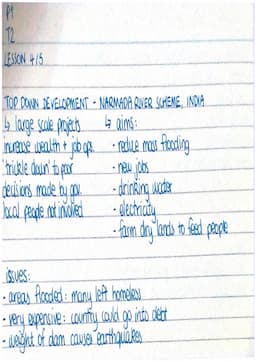 P1
T2
LESSON 4/5
TOP DOWN DEVELOPMENT - NARMADA RIVER SCHEME, INDIA
↳ large scale projects
increase wealth + job ops.
'trickle down' to poor
decisions made by gov.
local people not involved
↳ aims:
- reduce mass flooding
- new jobs
- drinking water
- electricity
- farm dry lands to feed people
issues:
- areas flooded: many left homeless
- very expensive: country could go into debt
- weight of dam causes earthquakes